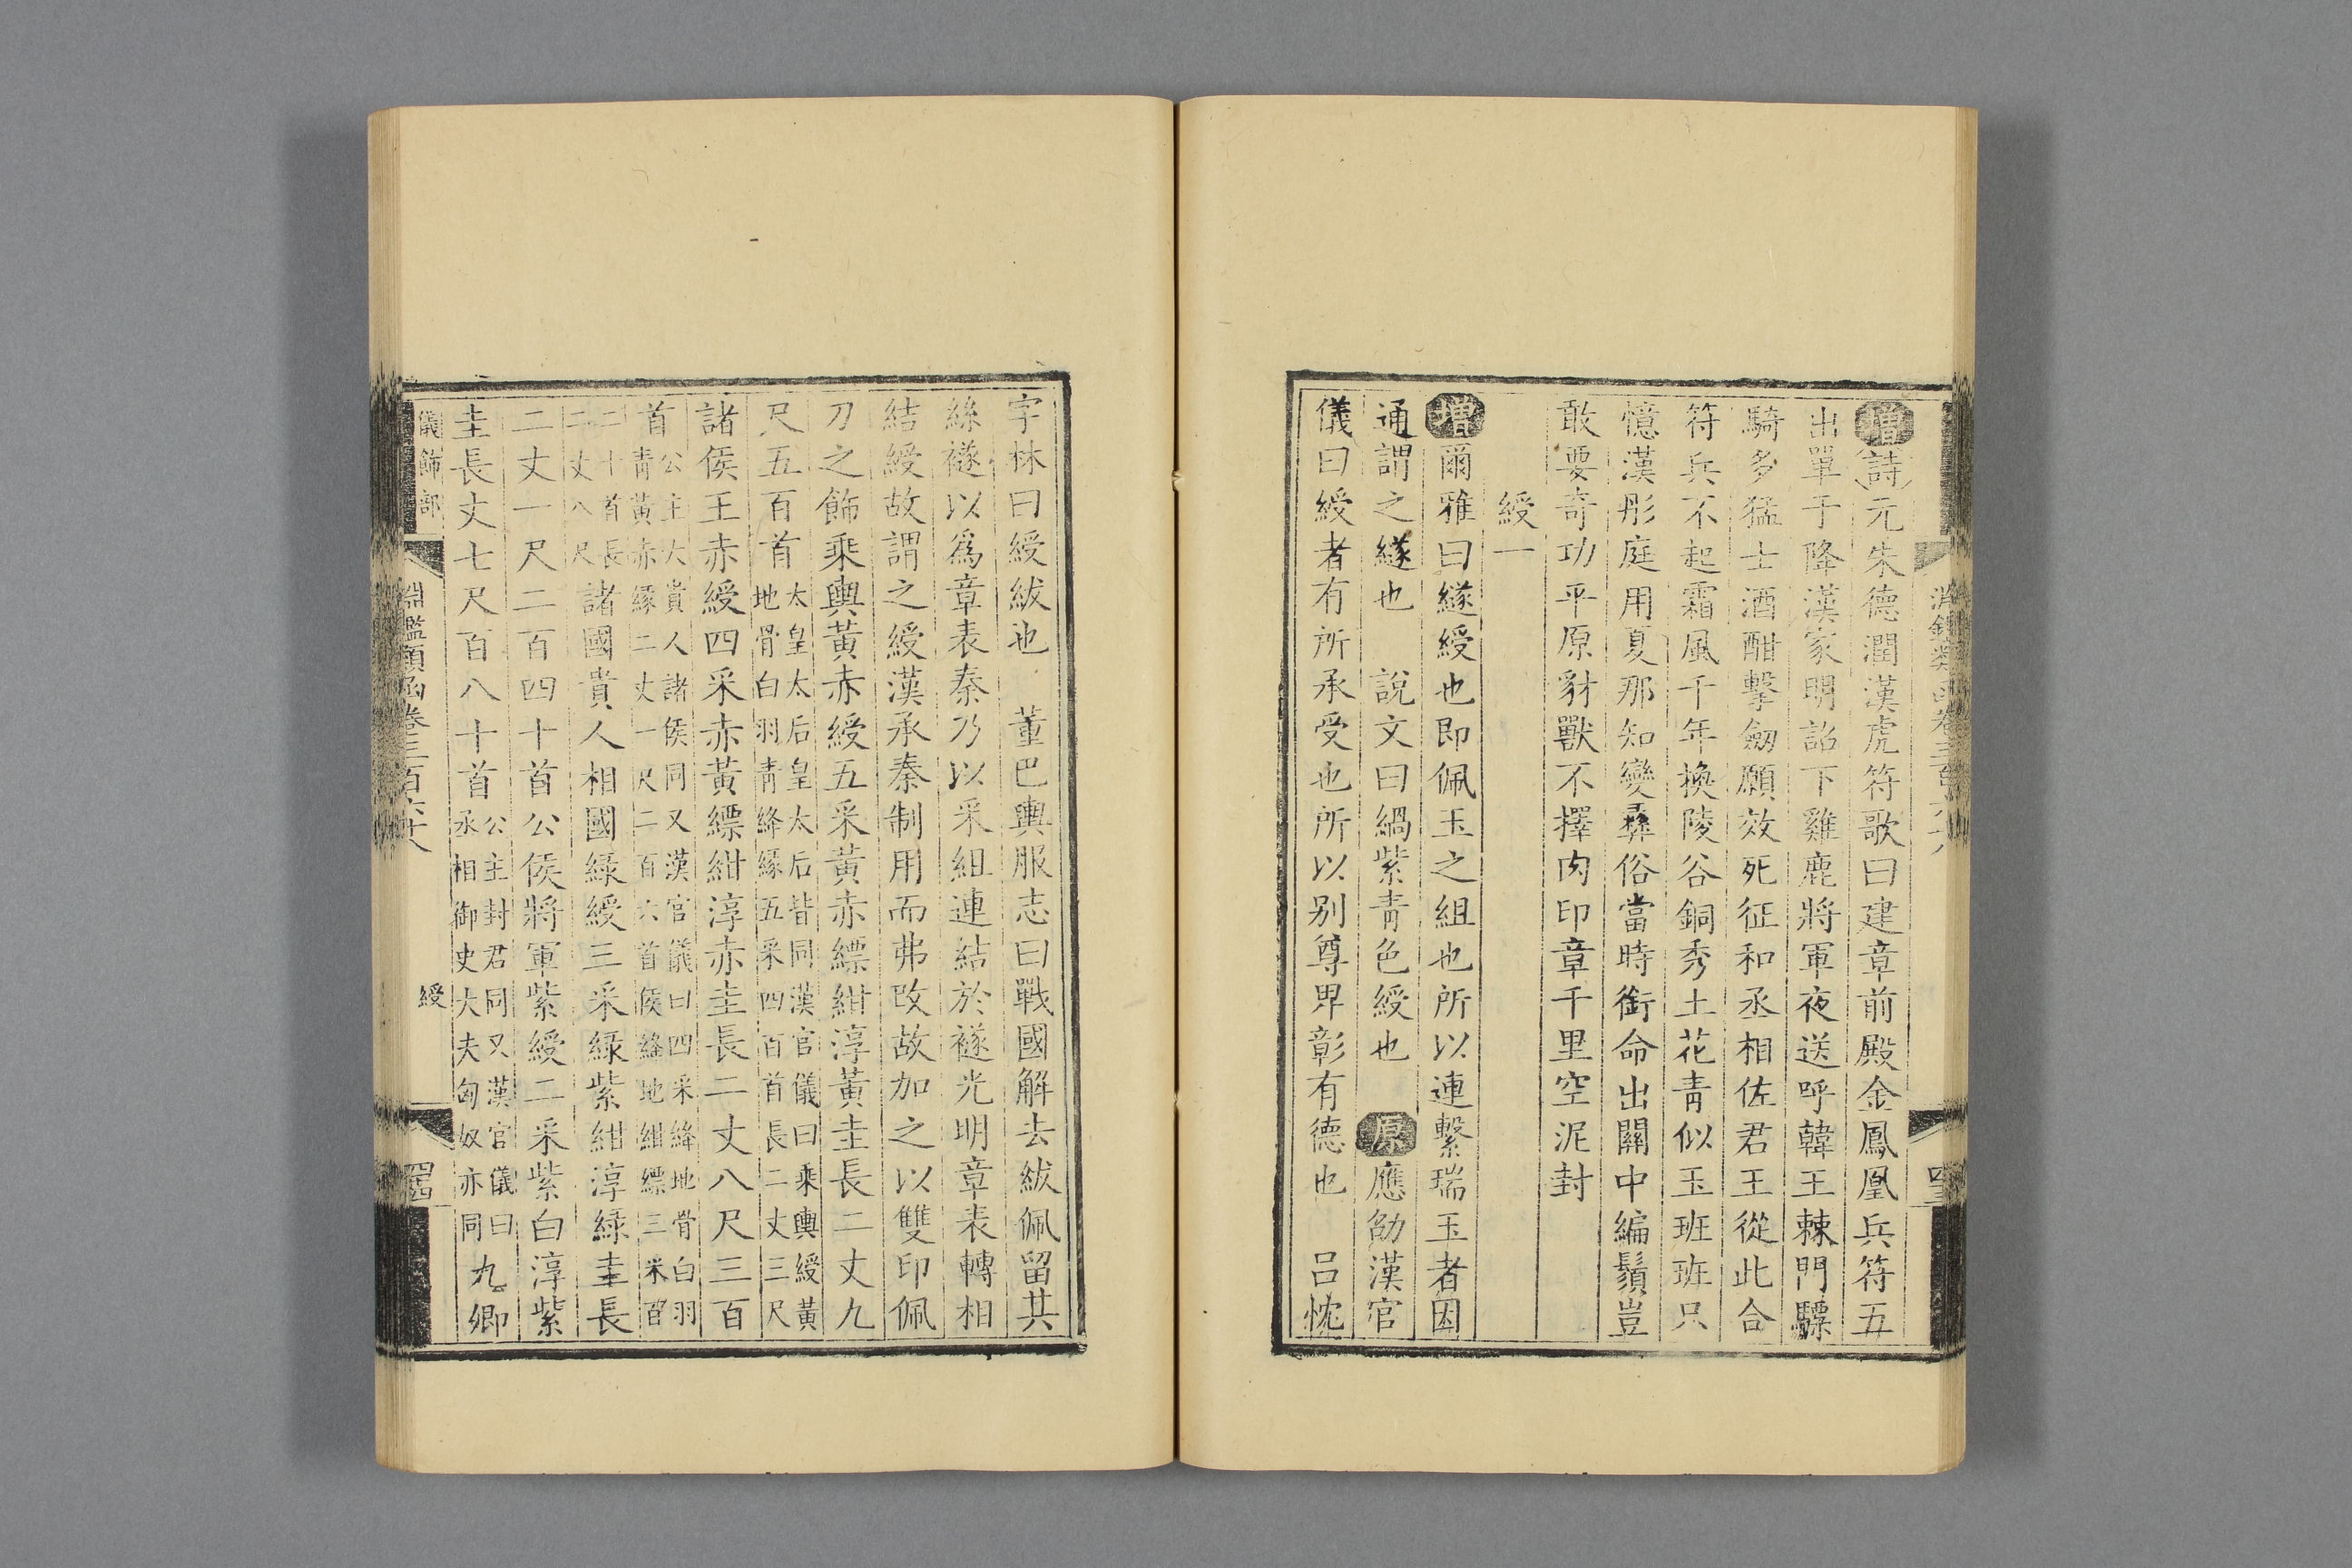 增詩元朱德潤漢虎符歌曰建章前殿金鳳凰兵符五
出單于降漢家明詔下雞鹿將軍夜送呼韓王棘門驃
騎多猛士酒酣擊劒願效死征和丞相佐君王從此合
符兵不起霜風千年換陵谷銅秀土花青似玉班班班只
憶漢彤庭用夏那知變彝俗當時銜命出關中編鬚豈
敢要奇功平原豺獸不擇肉印章千里空泥封
綬一
增爾雅曰繸綬也即佩玉之組也所以連繫瑞玉者因
通謂之繸也 說文曰緺紫青色綬也 原應劭漢官
儀曰綬者有所承受也所以别尊卑彰有德也 呂忱
字林曰綬紱也 董巴輿服志曰戰國解去紱佩留其
絲襚以爲章表秦乃以采組連結於襚光明章表轉相
結綬故謂之綬漢承秦制用而弗改故加之以雙印佩
刀之飾乘輿黃赤綬五采黃赤縹紺淳黃圭長二丈九
尺五百首太皇太后皇太后皆同漢官儀曰乘輿綬黃
地骨白羽青絳緣五采四百首長二丈三尺
諸侯王赤綬四采赤黃縹紺淳赤圭長二丈八尺三百
首公主大貴人諸侯同又漢官儀曰四采絳地骨白羽
青黃赤緣二丈一尺二百六首侯絳地紺縹三采百
二十首長
二丈八尺諸國貴人相國綠綬三采綠紫紺淳綠圭長
二丈一尺二百四十首公侯將軍紫綬二采紫白淳紫
圭長丈七尺百八十首公主封君同又漢官儀曰
丞相御史大夫匈奴亦同九卿
儀飾部 淵鑑類函卷三百六十八 綬